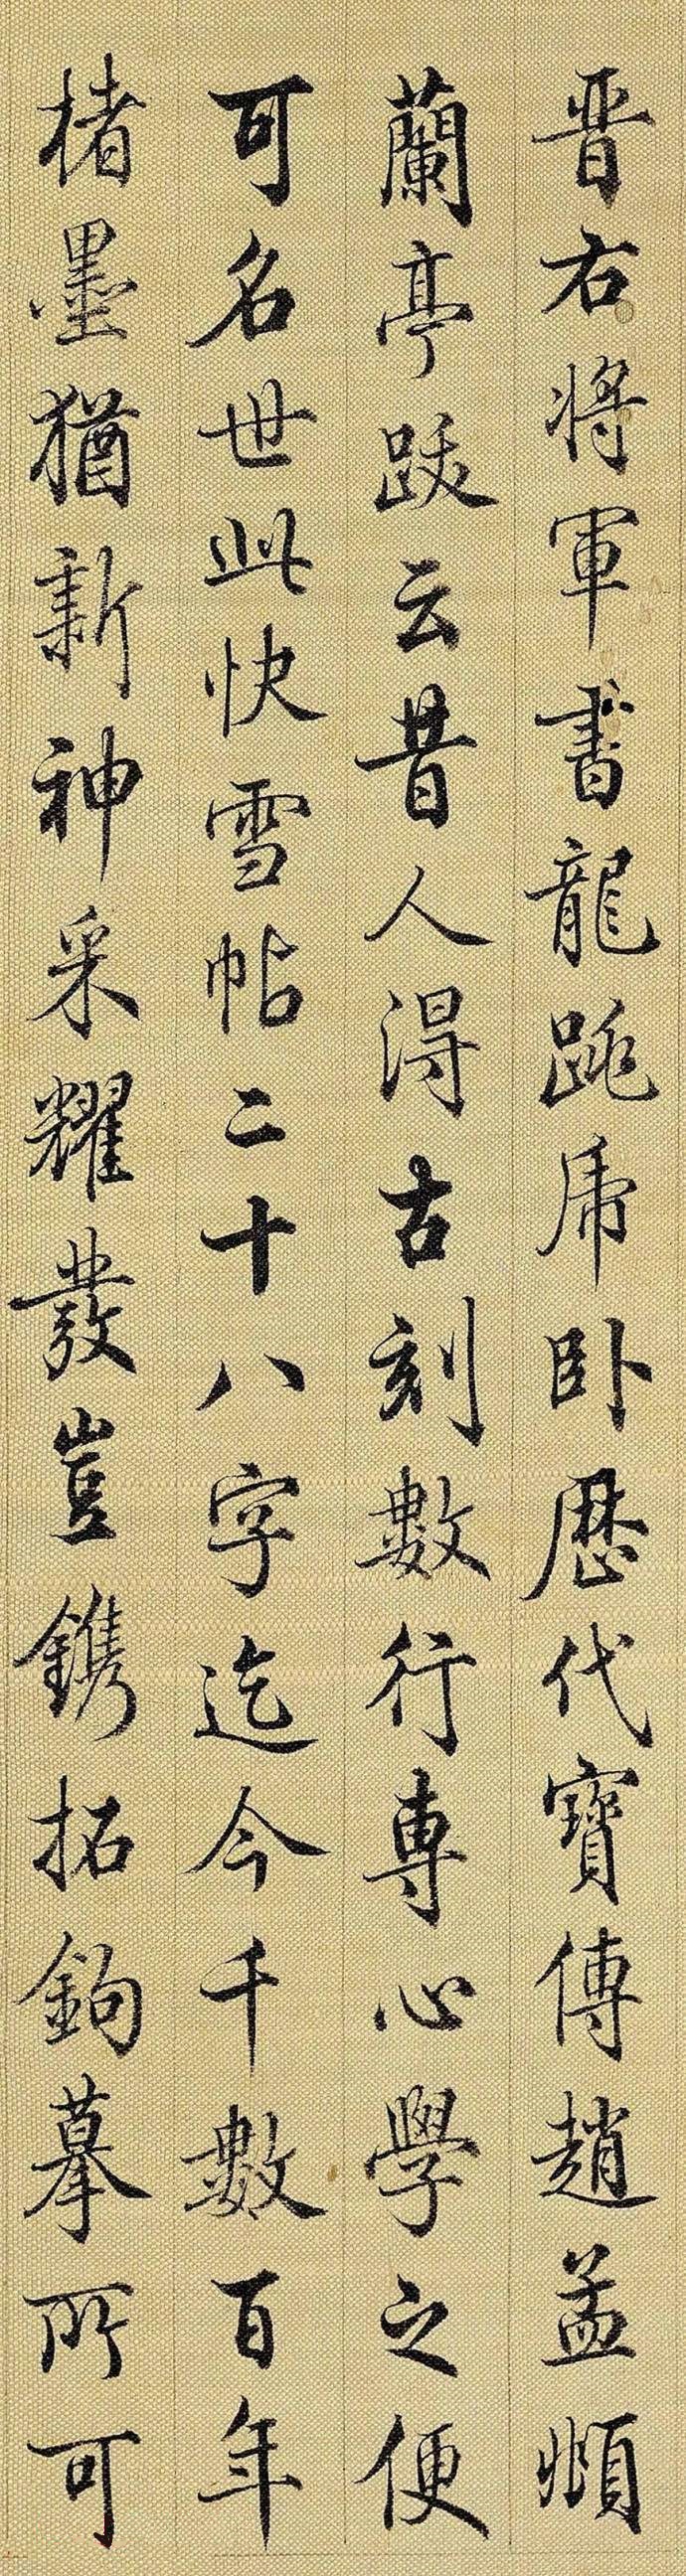 晋右将軍書龍跳虎卧歷代寶傳趙孟頫
蘭亭跋云昔人得古刻數行專心學之便
可名世此快雪帖二十八字迄今千數百年
楮墨猶新神采耀發豈鐫拓鉤摹所可